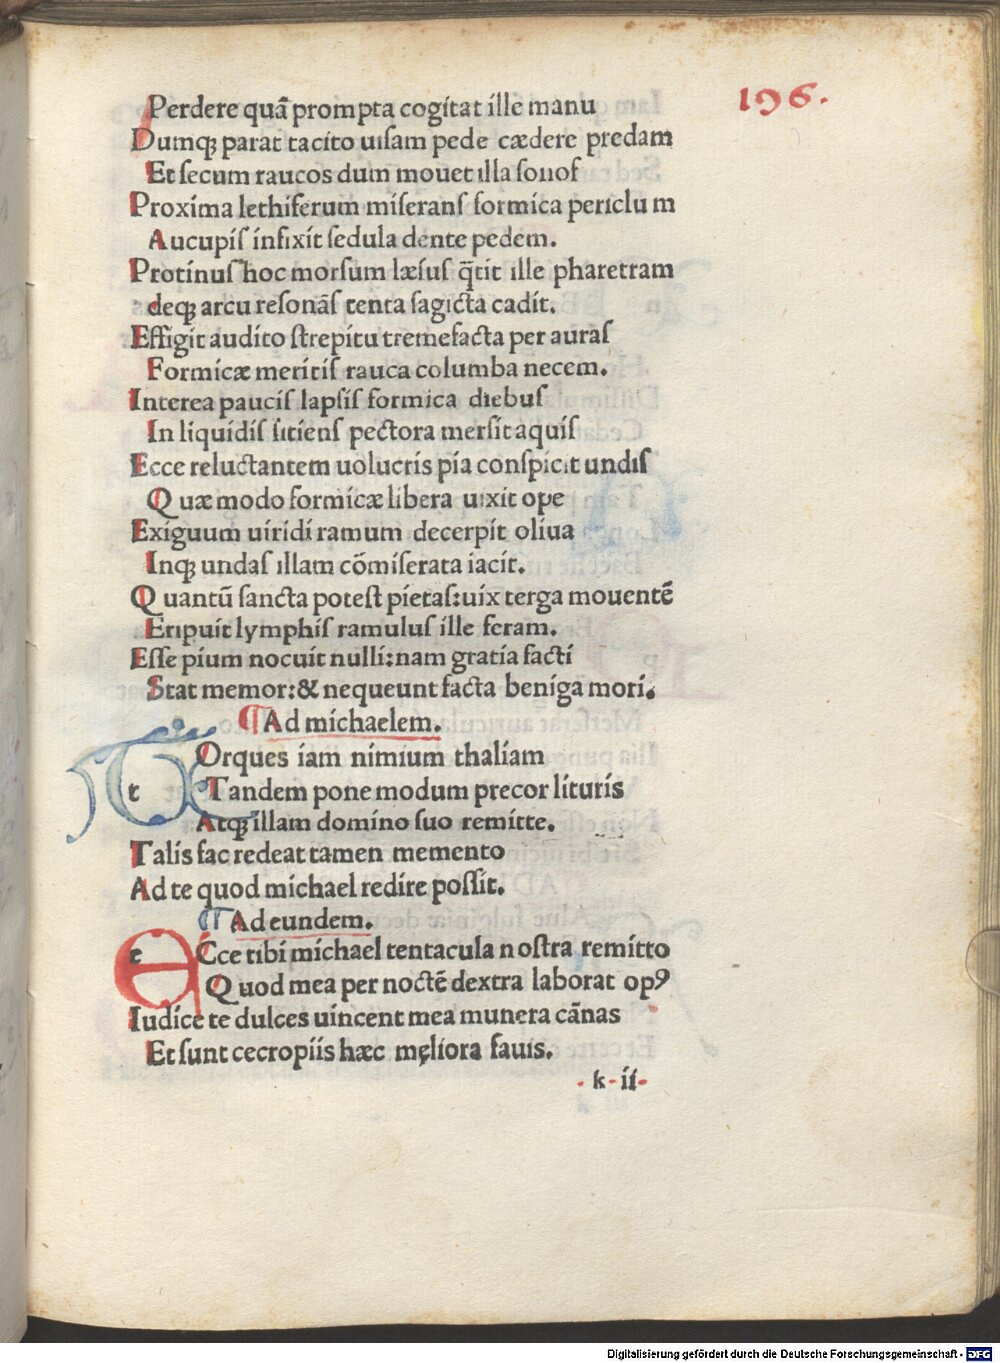 196.
Perdere quā prompta cogitat ille manu
Dumqꝫ parat tacito uisam pede cædere predam
Et secum raucos dum mouet illa sonos
Proxima lethiferum miserans formica periclum
Aucupis infixit sedula dente pedem.
Protinus hoc morsum læsus q̄tit ille pharetram
deqꝫ arcu resonās tenta sagicta cadit.
Effigit audito strepitu tremefacta per auras
Formicæ meritis rauca columba necem.
Interea paucis lapsis formica diebus
In liquidis sitiens pectora mersit aquis
Ecce reluctantem uolucris pia conspicit undis
Quæ modo formicæ libera uixit ope
Exiguum uiridi ramum decerpit oliua
Inqꝫ undas illam cōmiserata iacit.
Quantū sancta potest pietas:uix terga mouentē
Eripuit lymphis ramulus ille feram.
Esse pium nocuit nulli:nam gratia facti
Stat memor:& nequeunt facta beniga mori.
¶Ad michaelem.
tOrques iam nimium thaliam
Tandem pone modum precor lituris
Atqꝫ illam domino suo remitte.
Talis fac redeat tamen memento
Ad te quod michael redire possit.
¶Ad eundem.
eCce tibi michael tentacula nostra remitto
Quod mea per noctē dextra laborat opꝰ
Iudice te dulces uincent mea munera cānas
Et sunt cecropiis hæc męliora fauis.
.k.ii.
Digitalisierung gefördert durch die Deutsche Forschungsgemeinschaft - DFG